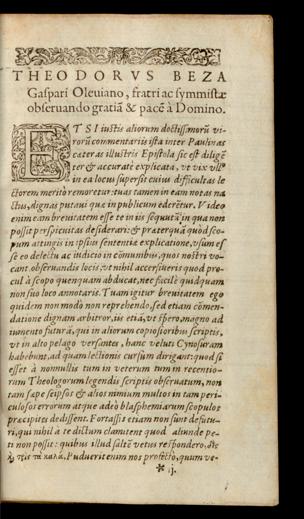 THEODORVS BEZA
Gaspari Oleuiano, fratri ac symmistæ
obseruando gratiã & pacẽ à Domino.
ETSI iustis aliorum doctissimorũ vi-
rorũ commentariis ista inter Paulinas
cæteras illustris Epistola sic est diligẽ
ter & accuratè explicata, vt vix vllus
in ea locus supersit cuius difficultas le-
ctorem meritò remoretur: tuas tamen in eam notas na
ctus, dignas putaui quæ in publicum ederẽtur. Video
enim eam breuitatem esse te in iis sequutũ in qua non
possit perspicuitas desiderari: & præterquã quòd sco-
pum attingis in ipsius sententiæ explicatione, vsum es
se eo delectu ac iudicio in cõmunibus, quos nostri vo-
cant, obseruandis locis, vt nihil accersiueris quod pro-
cul à scopo quenquam abducat, nec facilè quidquam
non suo loco annotaris. Tuam igitur breuitatem ego
quidem non modò non reprehendo, sed etiam cõmen-
datione dignam arbitror, iis etiã, vt spero, magno ad
iumento futurã, qui in aliorum copiosioribus scriptis,
vt in alto pelago versantes, hanc velut Cynosuram
habebunt, ad quam lectionis cursum dirigant: quod si
esset à nonnullis tum in veterum tum in recentio-
rum Theologorum legendis scriptis obseruatum, non
tam sæpe seipsos & alios nimium multos in tam peri-
culosos errorum atque adeò blasphemiarum scopulos
præcipites dedissent. Fortassis etiam non sunt defutu-
ri, qui nihil à te dictum clamitent quod aliunde pe-
ti non possit: quibus illud saltẽ vetus respondero,
τὰ καλὰ. Puduerit enim nos profectò, quum ve-
* ij.